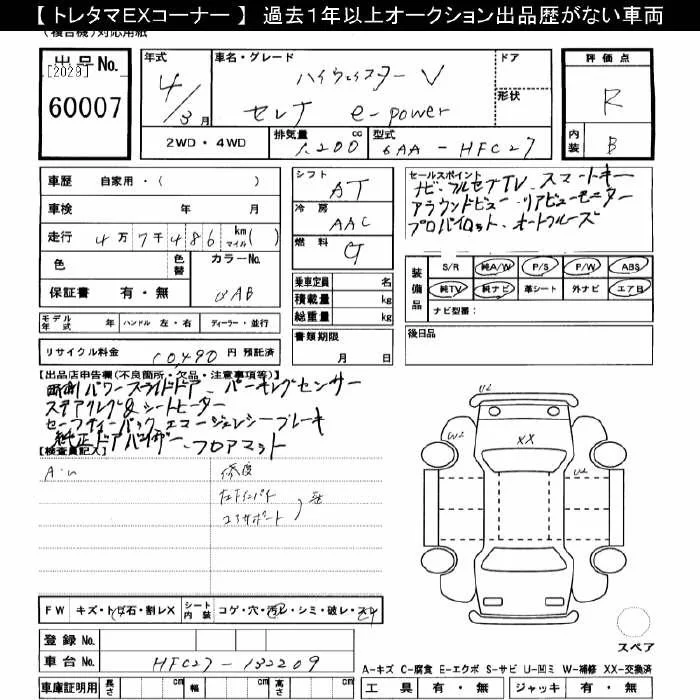 【 トレタマEXコーナー 】 過去１年以上オークション出品歴がない車両
出品No.
[2029]
60007
年式
4/3月
車名・グレード
ハイウェイスター V
セレナ e-power
ドア
形状
評価点
R
内装
B
2WD・4WD
排気量
1,200 cc
型式
6AA - HFC27
車歴 自家用・( )
車検 年 月
走行 4万7千486 km マイル( )
色
色替
カラーNo.
QAB
保証書 有・無
シフト
AT
冷房
AAC
燃料
G
乗車定員 名
積載量 kg
総重量 kg
セールスポイント
ナビ・フルセグTV、スマートキー
アラウンドビュー・リアビューモニター
プロパイロット・オートクルーズ
装備品
S/R 純A/W P/S P/W ABS
純TV 純ナビ 革シート 外ナビ エアB
ナビ型番:
モデル年式 年 ハンドル 左・右 ディーラー・並行
書類期限
月 日
後日品
リサイクル料金 10,490 円 預託済
【出品店申告欄(不良箇所・欠品・注意事項等)】
パワースライドドア、パーキングセンサー
ステアリング&シートヒーター
エマージェンシーブレーキ
純正ドアバイザー、フロアマット
【検査員記入】
修復
左下インパネ
コアサポート
FW キズ・トビ石・割レX シート内装 コゲ・穴・汚レ・シミ・破レ・スレ
登録No.
車台No. HFC27-132209
車庫証明用 長さ cm 幅 cm 高さ cm
U2
W2
XX
U2
スペア
A-キズ C-腐食 E-エクボ S-サビ U-凹ミ W-補修 XX-交換済
工具 有・無 ジャッキ 有・無